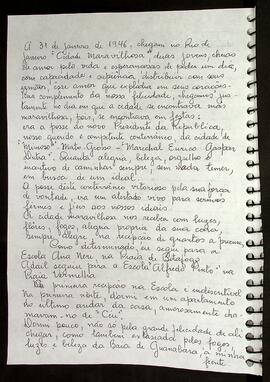 A 31 de Janeiro de 1946, chegam no Rio de
Janeiro "Cidade Maravilhosa" duas jovens, cheias
de amor pela vida e esperançosas de poder um dia,
com capacidade e eficiência, distribuir com seus
irmãos, esse amor que explodia em seus corações.
Por complemento da nossa felicidade, chegamos jus-
tamente no dia em que a cidade se encontrava mais
maravilhosa, pois, se encontrava em festas:
era a posse do novo Presidente da República,
nosso querido e competente conterrâneo, da cidade de
"Mimoso" - Mato-Grosso - "Marechal Eurico Gaspar
Dutra". Quanta alegria, beleza, orgulho e
incentivo de caminhar sempre, sem nada temer,
em busca de um ideal.
A posse deste conterrâneo vitorioso pela sua força
de vontade, era um alertado vivo para sermos
firmes e fieis aos nossos ideais.
A cidade maravilhosa nos recebeu com luzes,
flores, fogos, alegria própria da sua gente,
sempre alegre, na recepção de quantos a procuram.
Como determinação eu segui para a
Escola Ana Neri na Praia de Botafogo
Adail seguiu para a Escola "Alfredo Pinto" na
Praia Vermelha
A primeira recepção na Escola é indiscritível
Na primeira noite, dormi em um apartamento
no último andar da casa, amorosamente cha-
maram-no de "Céu".
Dormi pouco, não só pela grande felicidade de ali
chegar, como também extasiada pelos fogos,
luzes e beleza da Baía de Guanabara, à minha
frente.